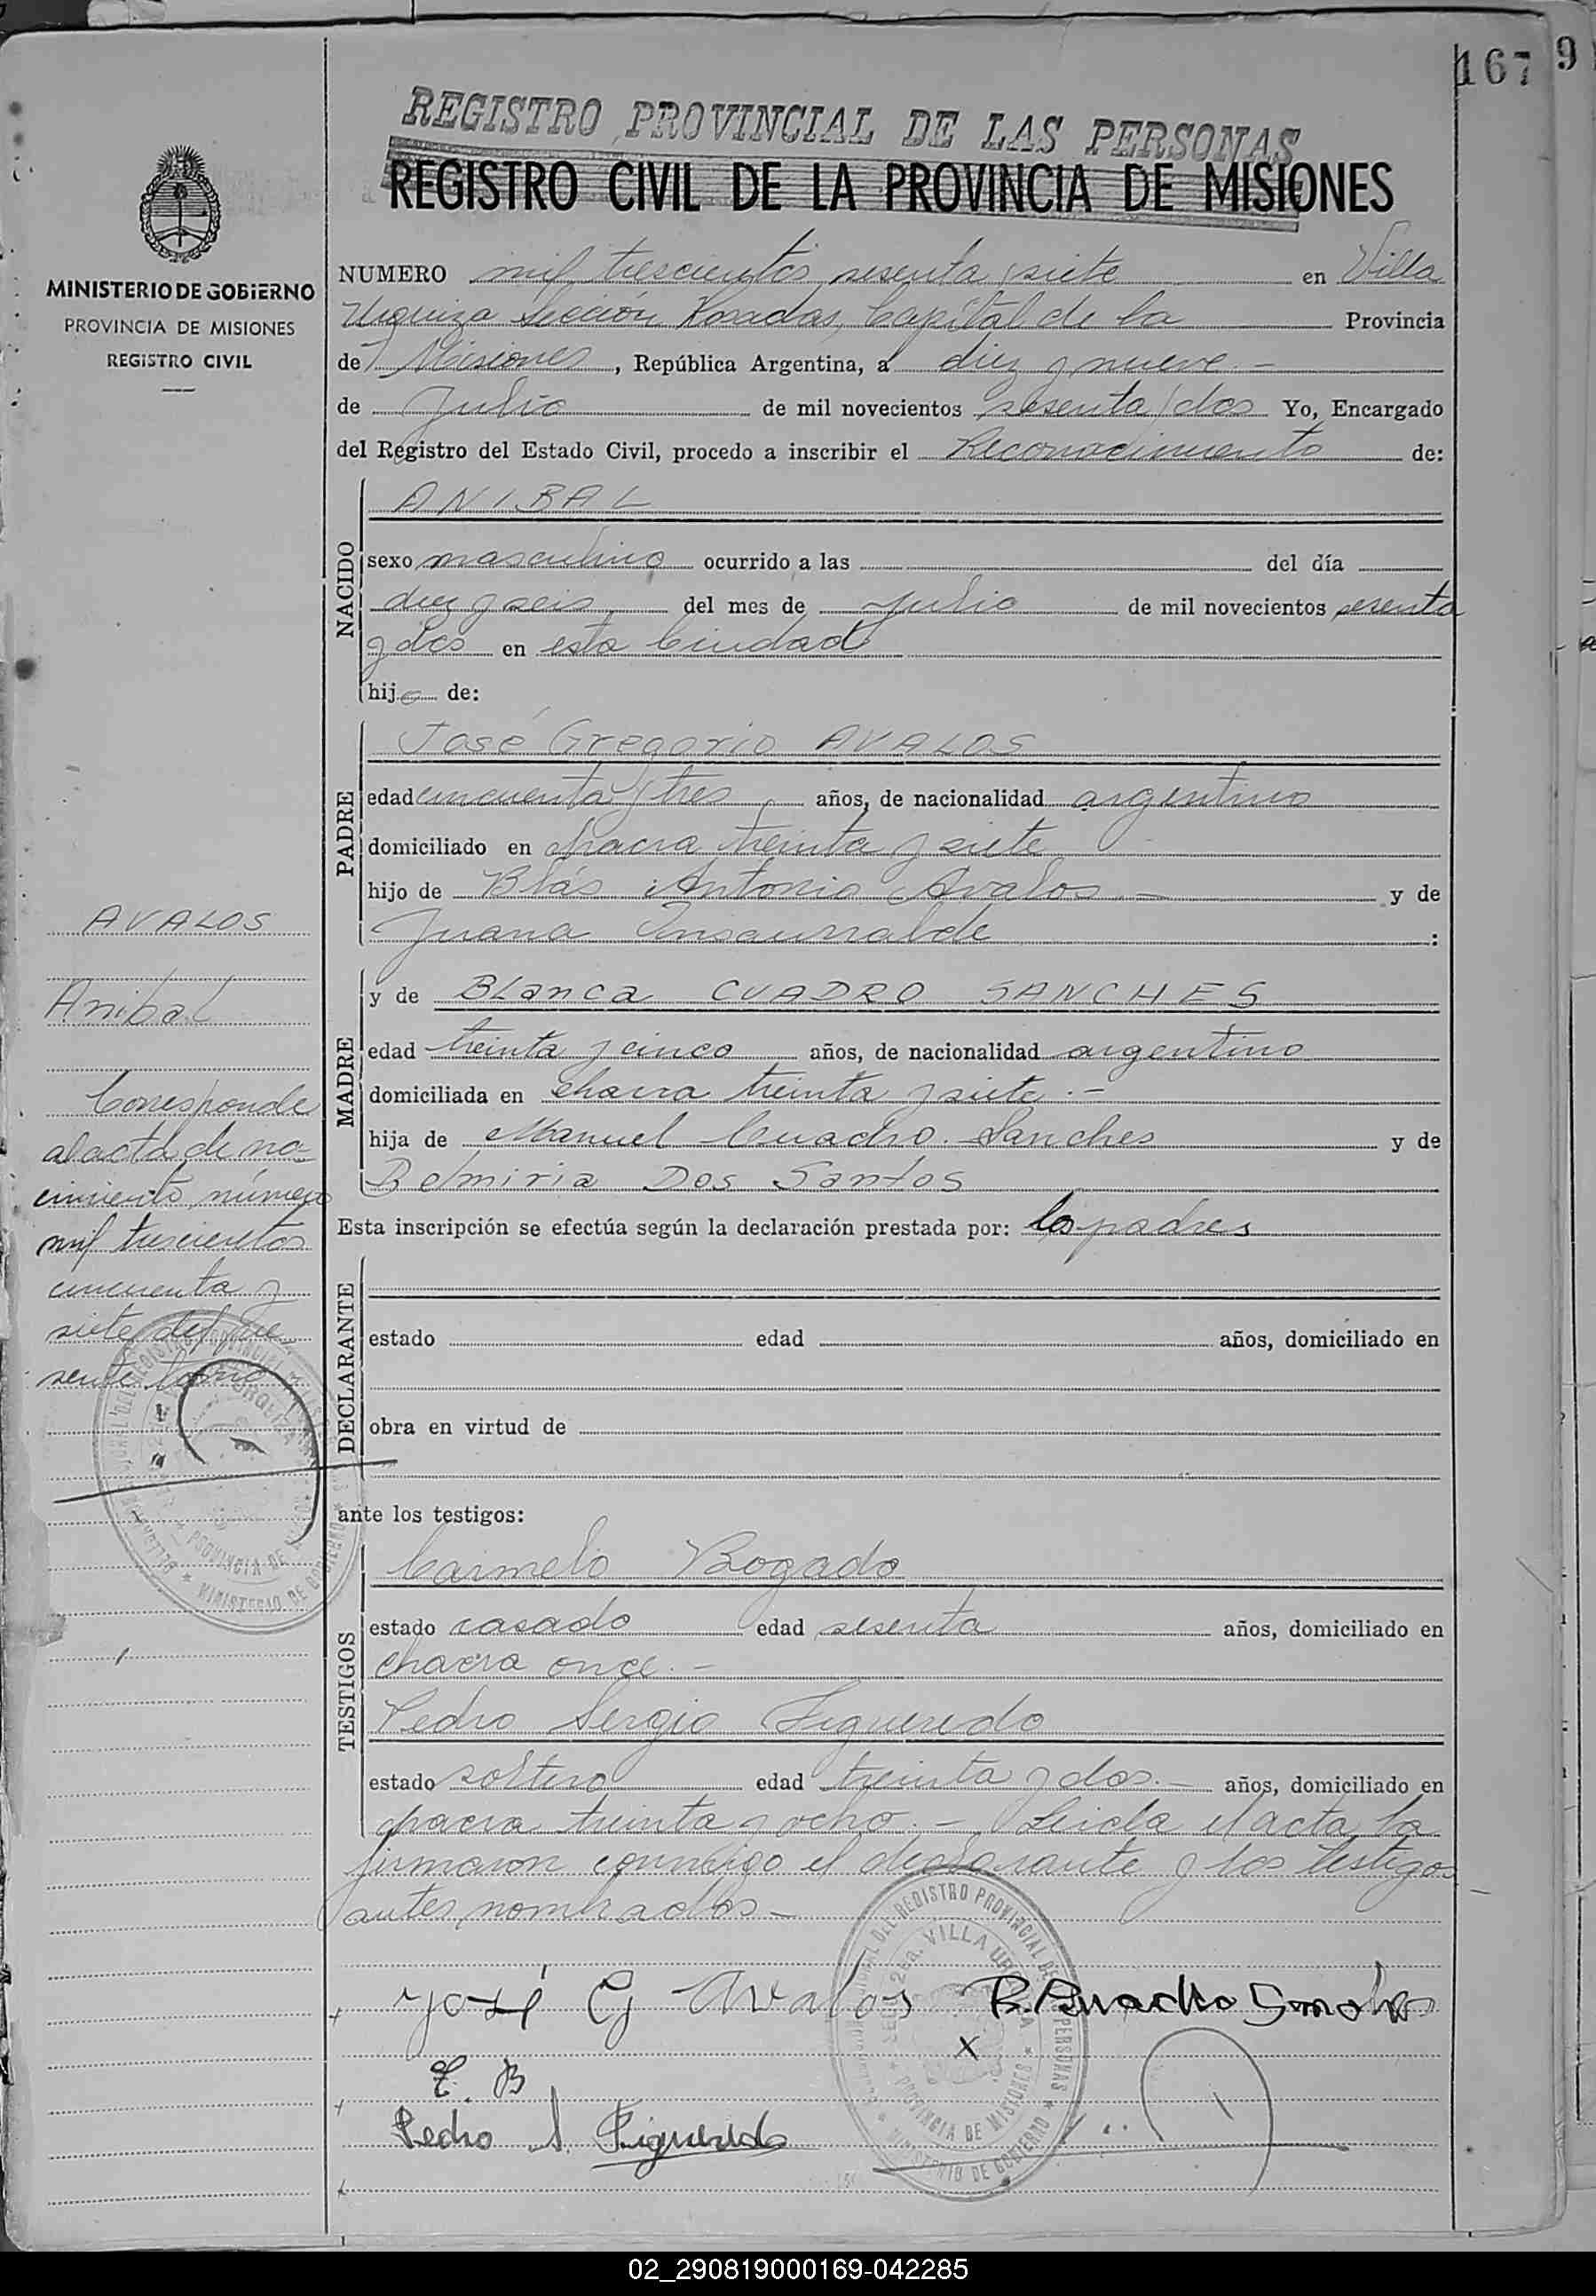 167 9
REGISTRO PROVINCIAL DE LAS PERSONAS
REGISTRO CIVIL DE LA PROVINCIA DE MISIONES
MINISTERIO DE GOBIERNO
PROVINCIA DE MISIONES
REGISTRO CIVIL
NUMERO mil trescientos sesenta y siete en Villa
Urquiza Sección Posadas, Capital de la Provincia
de Misiones, República Argentina, a diez y nueve.-
de Julio de mil novecientos sesenta y dos Yo, Encargado
del Registro del Estado Civil, procedo a inscribir el Reconocimiento de:
NACIDO
ANIBAL
sexo masculino ocurrido a las del día
diez y seis del mes de Julio de mil novecientos sesenta
y dos en esta Ciudad
hijo de:
PADRE
José Gregorio AVALOS
edad cincuenta y tres años, de nacionalidad argentino
domiciliado en chacra treinta y siete
hijo de Blás Antonio Avalos - y de
Juana Insaurralde :
MADRE
y de Blanca CUADRO SANCHES
edad treinta y cinco años, de nacionalidad argentino
domiciliada en chacra treinta y siete.-
hija de Manuel Cuadro Sanches y de
Belmiria Dos Santos
Esta inscripción se efectúa según la declaración prestada por: los padres
DECLARANTE
estado edad años, domiciliado en
obra en virtud de
ante los testigos:
TESTIGOS
Carmelo Bogado
estado casado edad sesenta años, domiciliado en
chacra once.-
Pedro Sergio Figueredo
estado soltero edad treinta y dos.- años, domiciliado en
chacra treinta y ocho.- Leida el acta, la
firmaron conmigo el declarante y los testigos
antes nombrados-
José G Avalos B. Cuadro Sanches
C. B
Pedro S. Figueredo
AVALOS
Anibal
Corresponde
al acta de na-
cimiento, número
mil trescientos
cincuenta y
siete del pre-
sente tomo
DEL REGISTRO PROVINCIAL DE LAS PERSONAS
SECC. 2da. VILLA URQUIZA
PROVINCIA DE MISIONES
MINISTERIO DE GOBIERNO
02_290819000169-042285